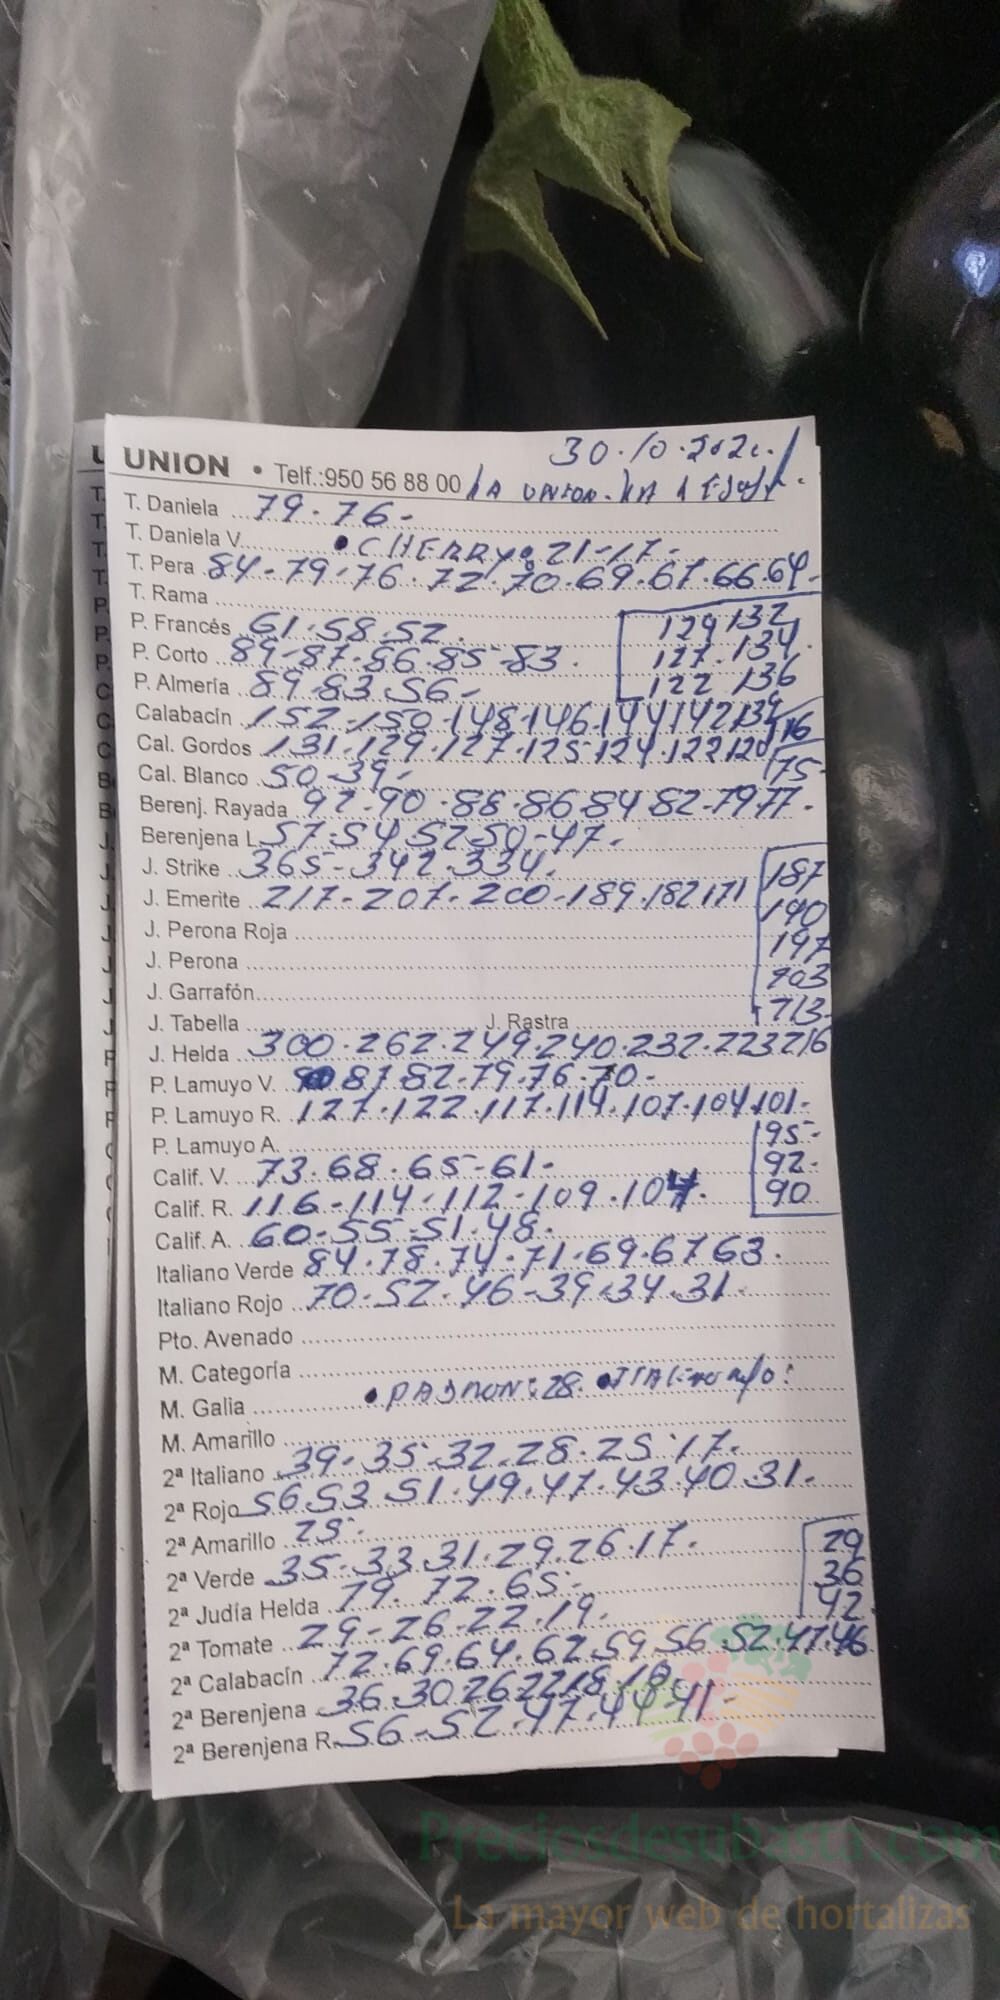 UNION • Telf.:950 56 88 00 30.10.202
LA UNION.
T. Daniela 79.76-
T. Daniela V. • CHERRY: 21-17-
T. Pera 84-79-76.72.70.69.67.66.64-
T. Rama
P. Francés 61.58.52. 129 132
P. Corto 89-87.86.85-83. 127.134.
P. Almería 89.83.56- 122 136
Calabacín 152-150-148-146.144142139 116
Cal. Gordos 131.129.127.125-124.122120 175-
Cal. Blanco 50.39-
Berenj. Rayada 92-90.88.86.84 82-7977-
Berenjena L. 57-54.5250-47-
J. Strike 365-342.334. 187
J. Emerite 217-207.200-189.182171 190
J. Perona Roja 197
J. Perona 203
J. Garrafón 213-
J. Tabella J. Rastra
J. Helda 300.262.249.240.232.223216
P. Lamuyo V. 87.82-79.76.70-
P. Lamuyo R. 127.122.117.114.107.104.101-
P. Lamuyo A. 95-
Calif. V. 73.68.65-61- 92-
Calif. R. 116-114-112-109.104. 90
Calif. A. 60-55-51.48.
Italiano Verde 84.78.74.71.69.67 63.
Italiano Rojo 70-52.46-39.34.31-
Pto. Avenado
M. Categoría
M. Galia • PADRON: 28.
M. Amarillo
2ª Italiano 39-35.32.28.25.17.
2ª Rojo 56.53.51.49.47.43.40.31-
2ª Amarillo 25-
2ª Verde 35-33.31.29.26.17. 29
2ª Judía Helda 79.72.65- 36
2ª Tomate 29-26.22.19. 42
2ª Calabacín 72.69.64.62.59.56.52.47.46
2ª Berenjena 36.30.26221818
2ª Berenjena R. 56-52.47.4441-
Preciosdesubasta.com
La mayor web de hortalizas